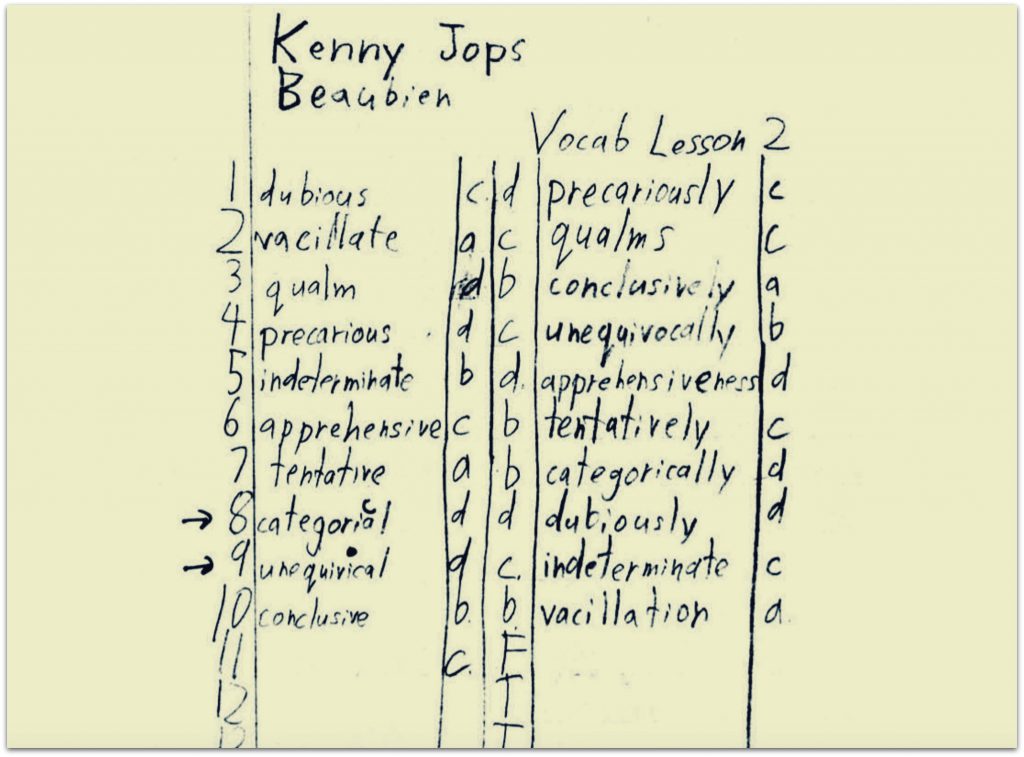 Kenny Jops
Beaubien
Vocab Lesson 2
1 dubious c. d precariously c
2 vacillate a c qualms c
3 qualm d b conclusively a
4 precarious d c unequivocally b
5 indeterminate b d. apprehensiveness d
6 apprehensive c b tentatively c
7 tentative a b categorically d
→ 8 categorical d d dubiously d
→ 9 unequivical d c. indeterminate c
10 conclusive b. b. vacillation a.
11 c. F
12 T